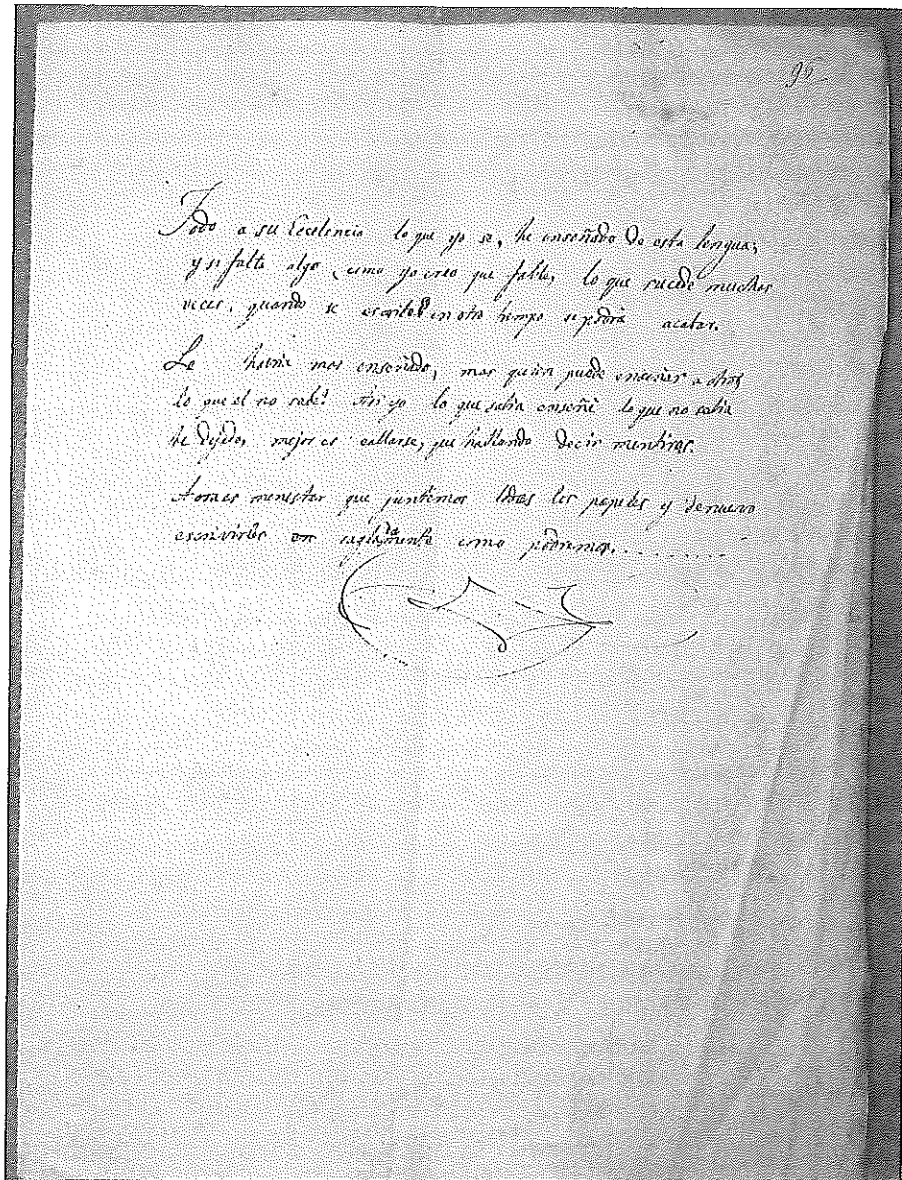 Todo a su Ecelencia lo que yo se, he enseñado de esta lengua;
y si falta algo, como yo creo que falte, lo que sucede muchas
veces, quando se escribe en otro tiempo se podrá acabar.
Le havria mas enseñado, mas quien puede enseñar a otros
lo que el no sabe? Asi yo lo que sabia enseñé lo que no sabia
he dejado, mejor es callarse, que hablando decir mentiras.
Aora es menester que juntemos todos los papeles y de nuevo
escrivirlos como podremos.